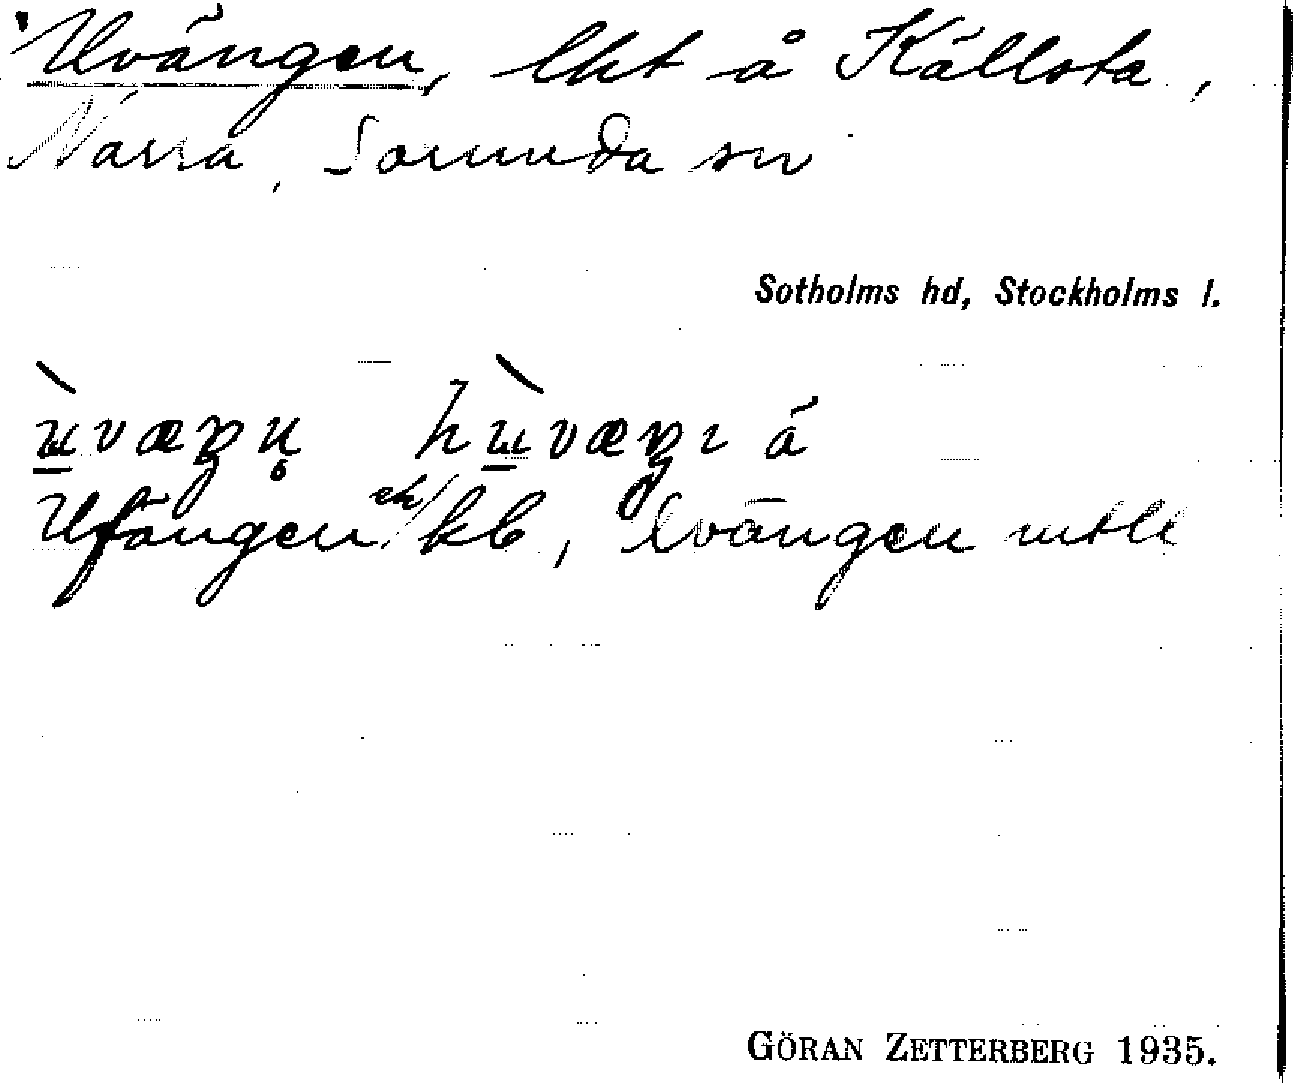 'Uvängen, lht å Källsta,
Närra, Sorunda sn
Sotholms hd, Stockholms l.
Ufängen ek/kb, Uvängen mtll
GÖRAN ZETTERBERG 1935.